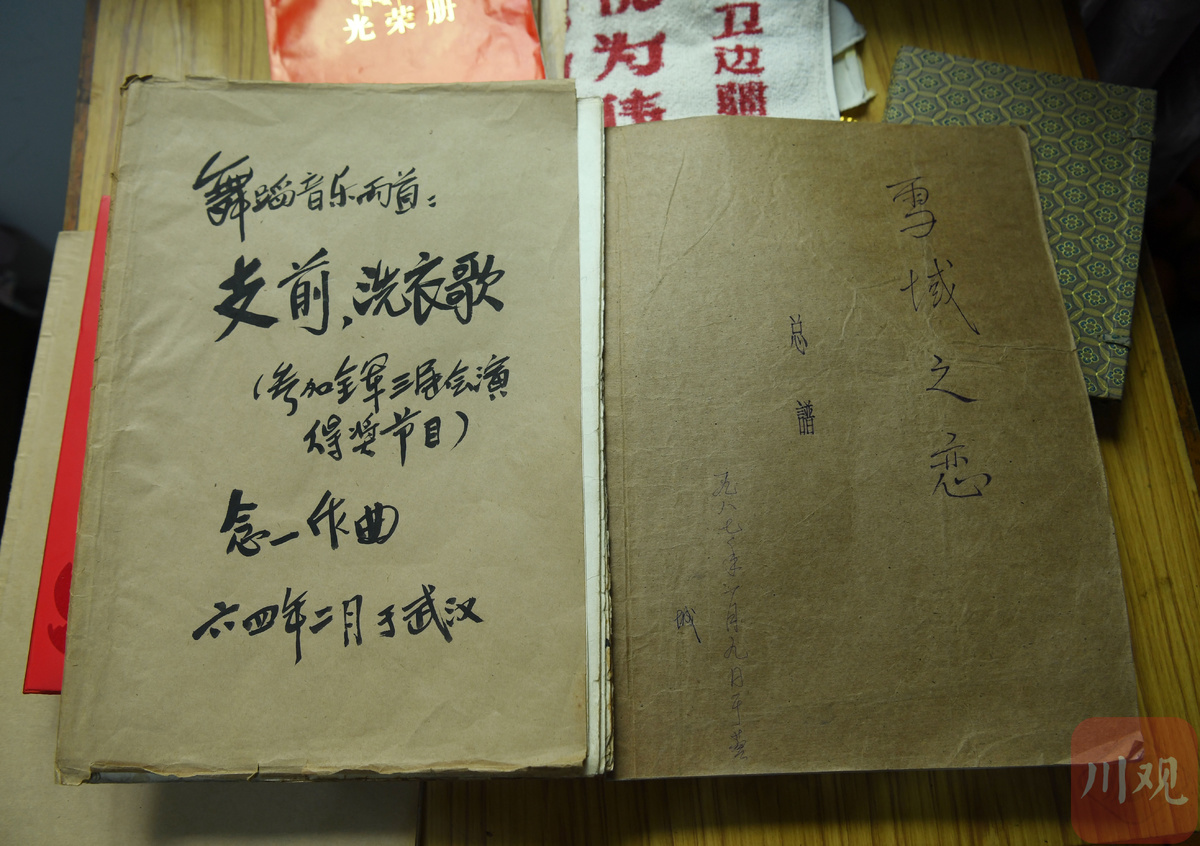 光荣册
为
卫边疆
舞蹈音乐两首：
支前、洗衣歌
（参加全军三届会演
得奖节目）
念一作曲
六四年二月于武汉
雪域之恋
总谱
九八七年六月九日于蓉
城
川观